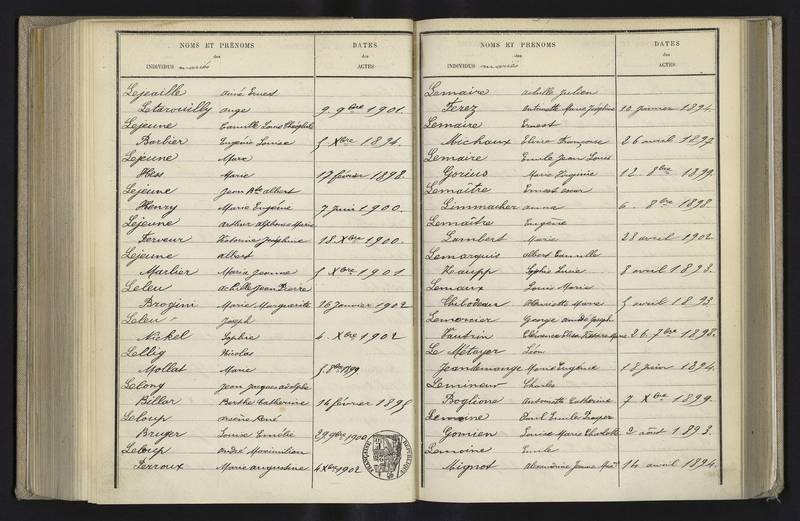 NOMS ET PRÉNOMS
des
INDIVIDUS mariés
DATES
des
ACTES
Lejeaille Aimé Ernest
Letarouilly Ange 9. 9bre 1901.
Lejeune Camille Louis Théophile
Barbier Eugénie Louise 5 Xbre 1894.
Lejeune Marc
Hess Marie 17 février 1898.
Lejeune Jean Bte Albert
Henry Marie Eugénie 7 juin 1900.
Lejeune Arthur Alphonse Marie
Ferveur Victorine Joséphine 18. Xbre 1900.
Lejeune Albert
Marlier Maria Jeanne 5 Xbre 1901
Leleu Achille Jean Pierre
Brogini Marie Marguerite 16 janvier 1902
Leleu Joseph
Nickel Sophie 4. Xbre 1902
Lellig Nicolas
Mollat Marie 5. 8bre 1899
Lelong Jean Jacques Adolphe
Billar Berthe Catherine 14 février 1895
Leloup René
Bruyer Louise Emélie 29 9bre 1900
Leloup André Maximilien
Perroux Marie Augustine 4 Xbre 1902
NOMS ET PRÉNOMS
des
INDIVIDUS mariés
DATES
des
ACTES
Lemaire Achille Julien
Ferez Antoinette Marie Joséphine 20 janvier 1894.
Lemaire Ernest
Michaux Elvire Françoise 26 avril 1897
Lemaire Emile Jean Louis
Gorius Marie Virginie 12. 8bre 1899.
Lemaître Ernest
Limmacher Anna 6. 8bre 1898.
Lemaître Eugénie
Lambert Marie 28 avril 1902
Lemarquis Albert Camille
Kaupp Sophie Lucie 8 avril 1893.
Lemaux Louis Marie
Thibodeur Henriette Marie 5 avril 1893
Lemercier George André Joseph
Vautrin Marie 26 7bre 1898.
Le Métayer Léon
Jeandemange Marie Eugénie 18 juin 1894.
Lemineur Charles
Boglione Antoinette Catherine 7 Xbre 1899.
Lemoine Paul Emile
Gomien Louise Marie Charlotte 2 août 1893.
Lemoine Emile
Mignot Alexandrine Jeanne 14 avril 1894.